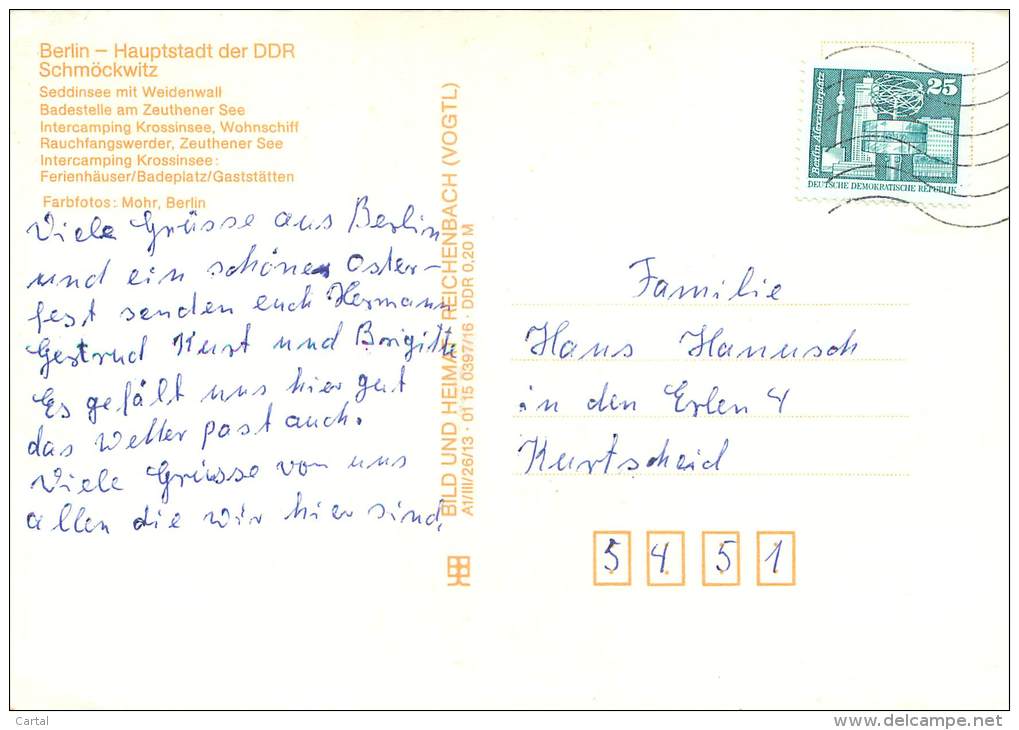 Berlin – Hauptstadt der DDR
Schmöckwitz
Seddinsee mit Weidenwall
Badestelle am Zeuthener See
Intercamping Krossinsee, Wohnschiff
Rauchfangswerder, Zeuthener See
Intercamping Krossinsee:
Ferienhäuser/Badeplatz/Gaststätten
Farbfotos: Mohr, Berlin
Viele Grüsse aus Berlin
und ein schönes Oster-
fest senden euch Hermann
Gertrud Kurt und Brigitte
Es gefält uns hier gut
das Wetter past auch.
Viele Grüsse von uns
allen die wir hier sind.
BILD UND HEIMAT REICHENBACH (VOGTL)
A1/III/26/13 · 01 15 0397/16 · DDR 0,20 M
25
Berlin Alexanderplatz
DEUTSCHE DEMOKRATISCHE REPUBLIK
Familie
Hans Hanusch
in den Erlen 4
Kurtscheid
5 4 5 1
Cartal
delcampe.net